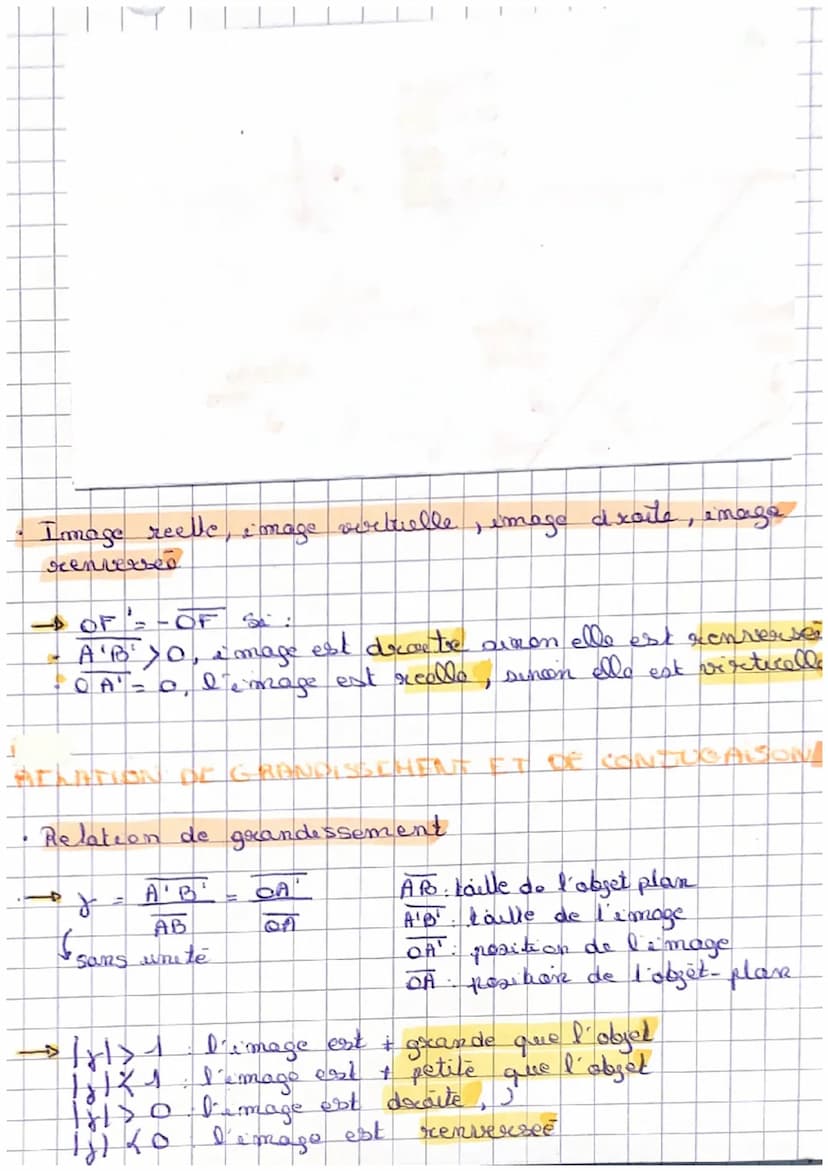 · Image reelle, image virtuelle, image droite, image
renversée
→ OF' = - OF Si :
- A'B' > 0, image est droite sinon elle est renversé
· OA' = 0, l'image est reelle, sinon elle est virtuelle
RELATION DE GRANDISSEMENT ET DE CONJUGAISON
· Relation de grandissement
→ γ = A'B' / AB = OA' / OA
sans unité
AB : taille de l'objet plan
A'B' : taille de l'image
OA' : position de l'image
OA : position de l'objet-plan
→ |γ| > 1 : l'image est + grande que l'objet
|γ| < 1 : l'image est + petite que l'objet
|γ| > 0 : l'image est droite,
|γ| < 0 : l'image est renversée